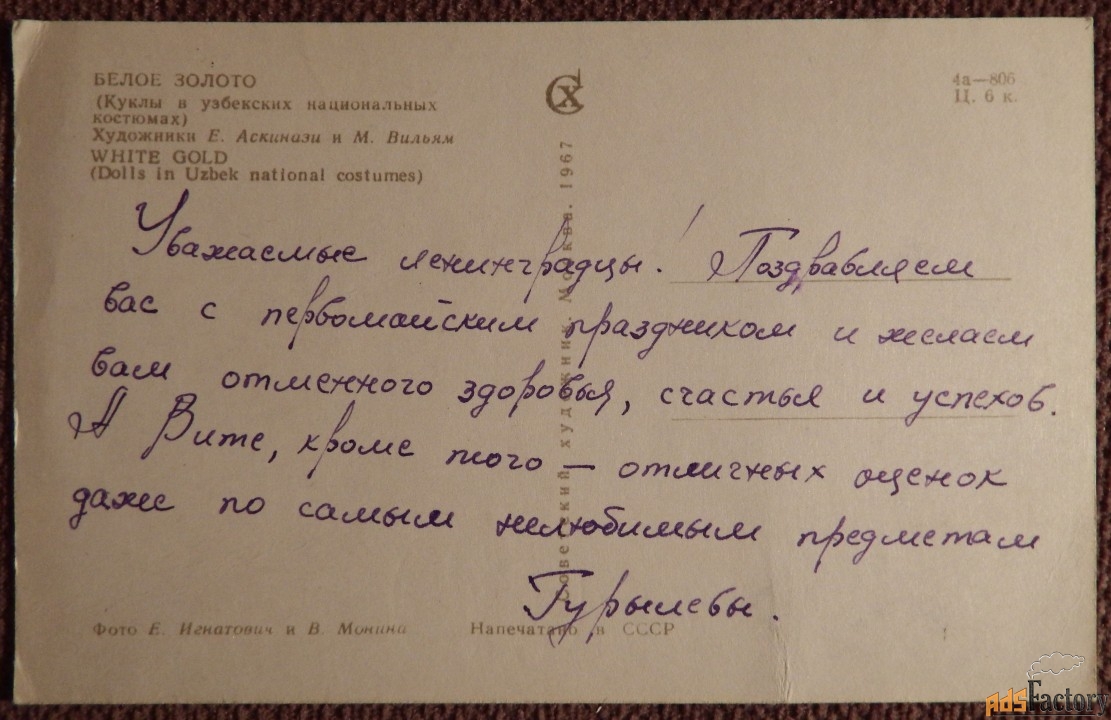 БЕЛОЕ ЗОЛОТО
(Куклы в узбекских национальных
костюмах)
Художники Е. Аскинази и М. Вильям
WHITE GOLD
(Dolls in Uzbek national costumes)
СХ
4а—806
Ц. 6 к.
Советский художник. Москва. 1967
Уважаемые ленинградцы! Поздравляем
вас с первомайским праздником и желаем
вам отменного здоровья, счастья и успехов.
А Вите, кроме того — отличных оценок
даже по самым нелюбимым предметам
Гурылевы.
Фото Е. Игнатович и В. Монина
Напечатано в СССР
AdsFactory